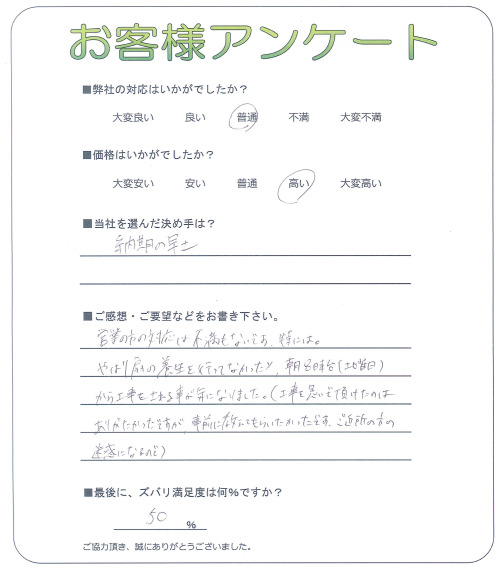 お客様アンケート
■弊社の対応はいかがでしたか？
大変良い 良い 普通 不満 大変不満
■価格はいかがでしたか？
大変安い 安い 普通 高い 大変高い
■当社を選んだ決め手は？
納期の早さ
■ご感想・ご要望などをお書き下さい。
営業の方の対応は不満もないです、特には。
やはり 扉の養生を行ってなかったり、朝8時台(土曜日)
から工事をされる事が気になりました。(工事を急いで頂けたのは
ありがたかったですが、事前に教えてもらいたかったです、ご近所の方の
迷惑になるので)
■最後に、ズバリ満足度は何%ですか？
50 %
ご協力頂き、誠にありがとうございました。